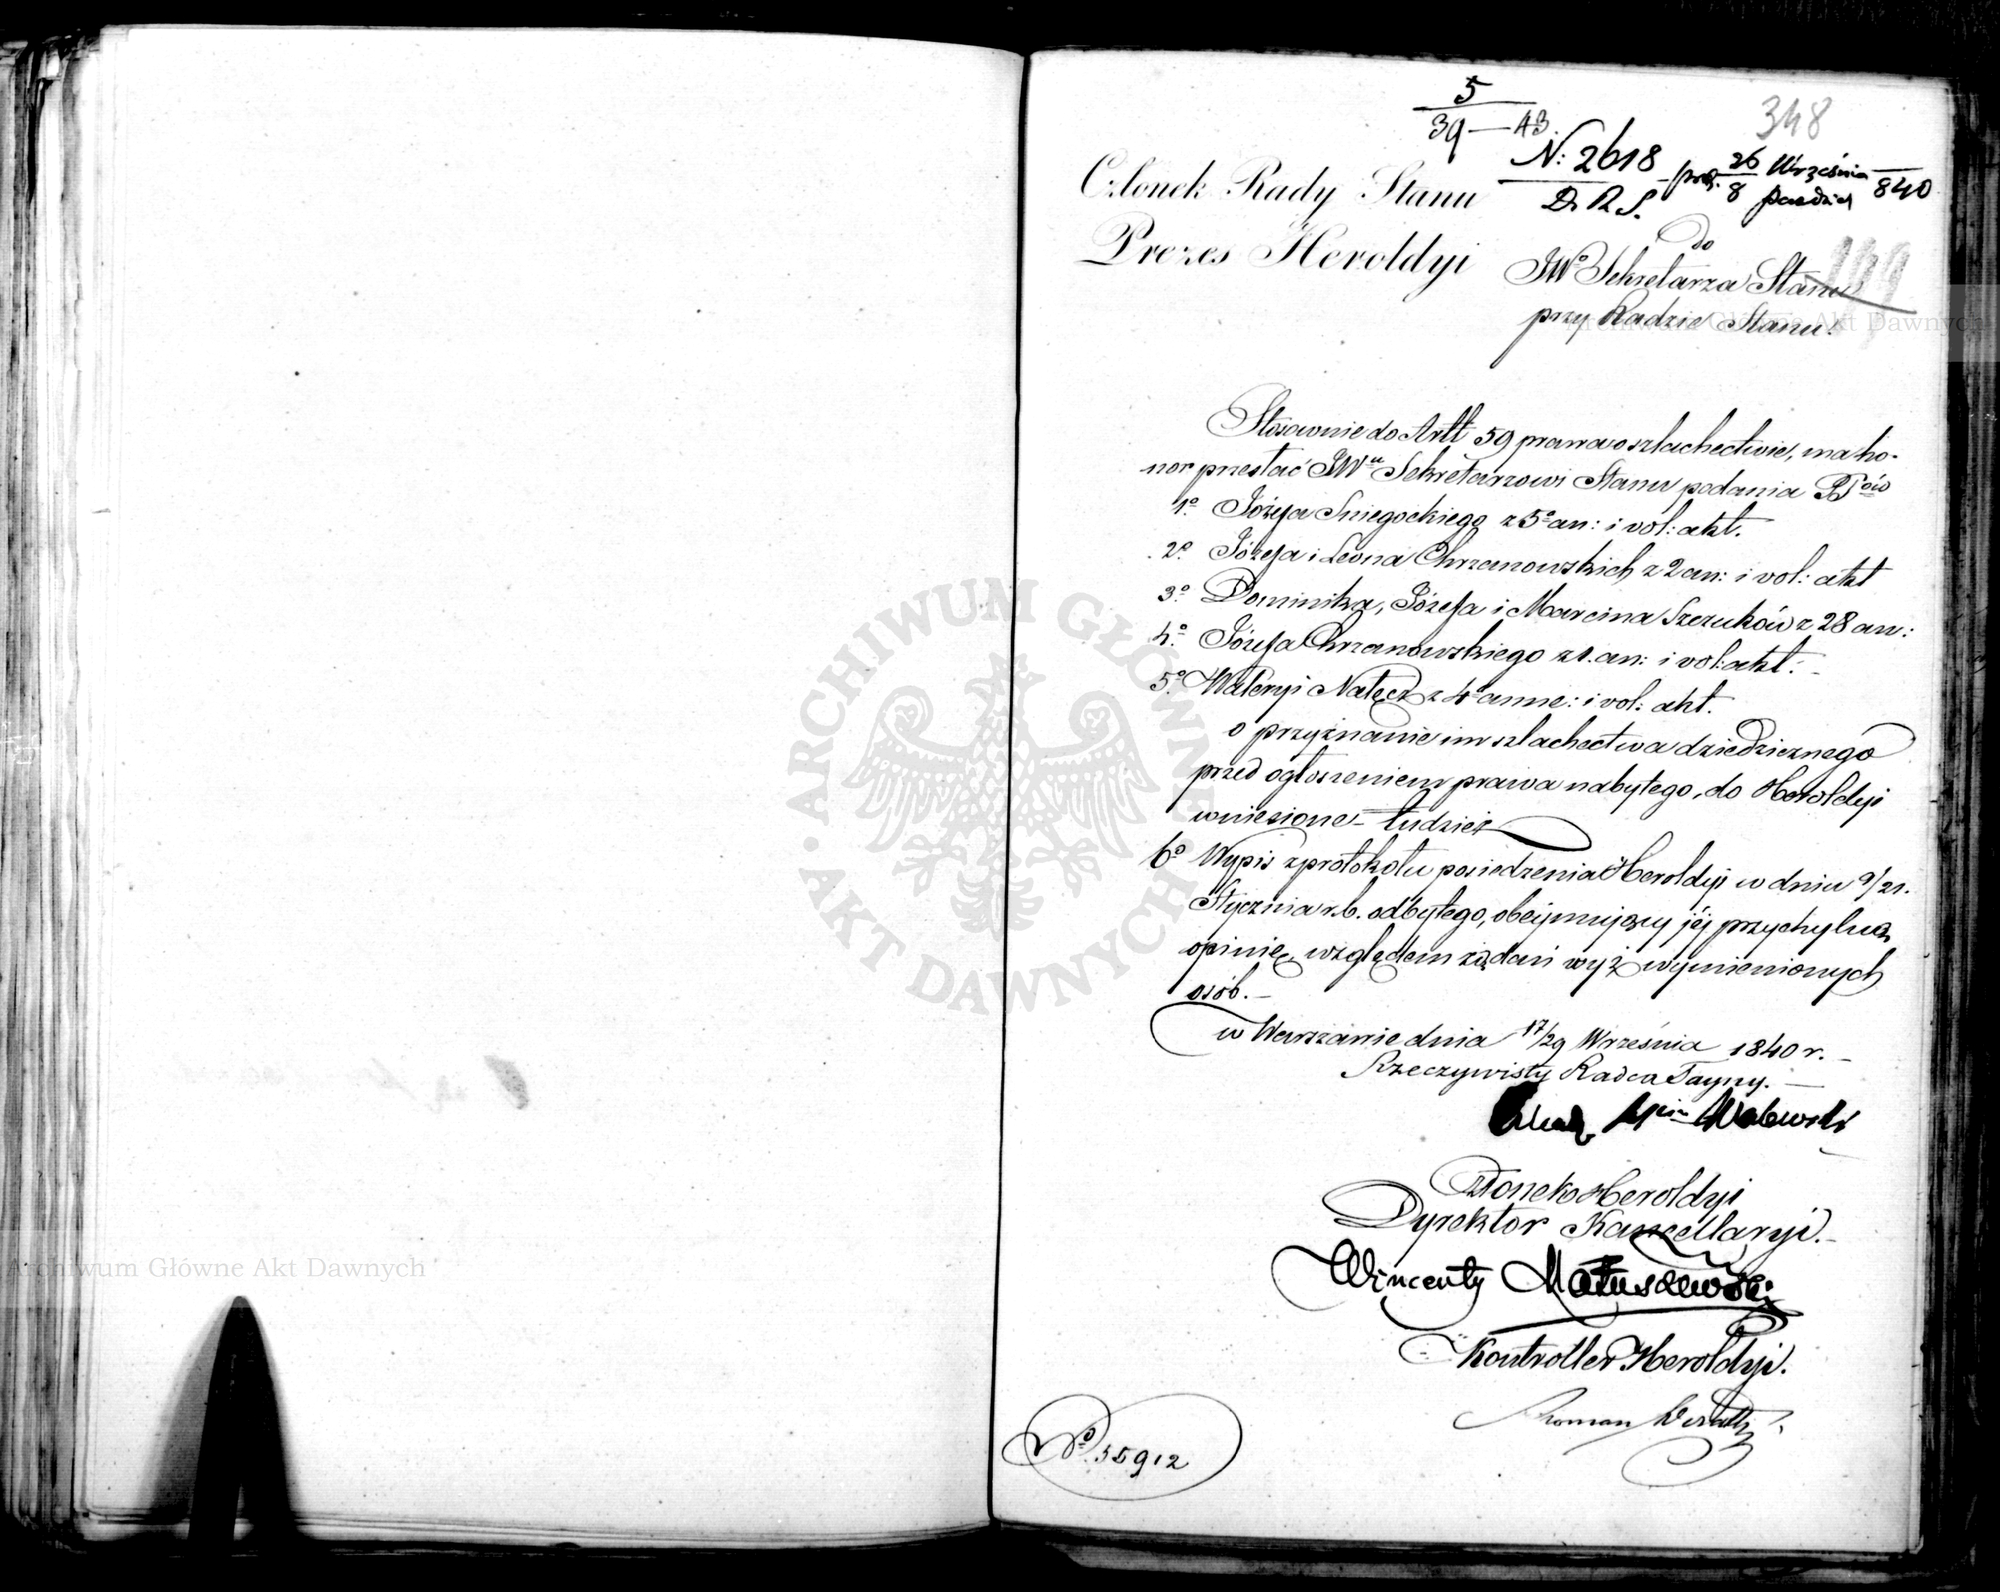 5
39 — 43.
348
Członek Rady Stanu
N: 2618
D. R. S.
prez. 26 Września 840
8 Paździer
Prezes Heroldyi
do
JWo Sekretarza Stanu
199
przy Radzie Stanu.
Stosownie do Artt 59 prawa o szlachectwie, ma ho-
nor przesłać JWu Sekretarzowi Stanu podania PPów
1o. Józefa Sniegockiego z 5o an: i vol: akt.
2o. Józefa i Leona Chrzanowskich z 2 an: i vol: akt
3o. Dominika, Józefa i Marcina Szeruków z 28 an:
4o. Józefa Chrzanowskiego z 1. an: i vol: akt: –
5o. Waleryi Nałęcz z 4o anne: i vol: akt.
o przyznanie im szlachectwa dziedzicznego
przed ogłoszeniem prawa nabytego, do Heroldyi
wniesione – tudzież
6o Wypis z protokołu posiedzenia Heroldyi w dniu 9/21.
Stycznia r. b. odbytego, obejmujący jéj przychylną
opinię, względem żądań wyż wymienionych
osób. –
w Warszawie dnia 17/29 Września 1840 r. –
Rzeczywisty Radca Tayny. –
Walewski
Członek Heroldyi
Dyrektor Kancellaryi. –
Wincenty Matuszewski
Kontroller Heroldyi.
Roman
No. 55912
ARCHIWUM GŁÓWNE
AKT DAWNYCH
Archiwum Główne Akt Dawnych
Archiwum Główne Akt Dawnych